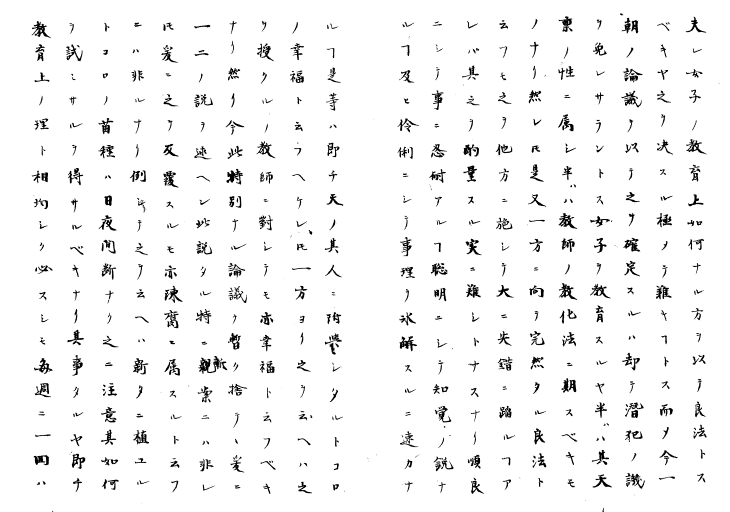 夫レ女子ノ教育上如何ナル方ヲ以テ良法トス
ベキヤ之ヲ決スル極メテ難キヿトス而メ今一
朝ノ論議ヲ以テ之ヲ確定スルハ却テ潜犯ノ譏
ヲ免レサラントス女子ヲ教育スルヤ半ハ其天
稟ノ性ニ属シ半ハ教師ノ教化法ニ期スベキモ
ノナリ然レ𪜈是又一方ニ向テ完然タル良法ト
云フモ之ヲ他方ニ施シテ大ニ失錯ニ蹈ルヿア
レバ其之ヲ酌量スル実ニ難シトナスナリ順良
ニシテ事ニ忍耐アルヿ聡明ニシテ知覚ノ鋭ナ
ルヿ及ヒ伶俐ニシテ事理ヲ氷解スルニ速カナ
ルヿ是等ハ即チ天ノ其人ニ附與シタルトコロ
ノ幸福ト云フヘケレ𪜈一方ヨリ之ヲ云ヘハ之
ヲ授クルノ教師ニ對シテモ亦幸福ト云フベキ
ナリ然リ今此特別ナル論議ヲ暫ク捨テヽ爰ニ
一二ノ説ヲ述ヘン此説タル特ニ新親案ニハ非レ
𪜈爰ニ之ヲ反覆スルモ亦陳腐ニ属スルト云フ
ニハ非ルナリ例シテ之ヲ云ヘハ新タニ植ユル
トコロノ苗種ハ日夜間断ナク之ニ注意其如何
ヲ試ミサルヲ得サルベキナリ其事タルヤ即チ
教育上ノ理ト相均シク必スシモ毎週ニ一回ハ